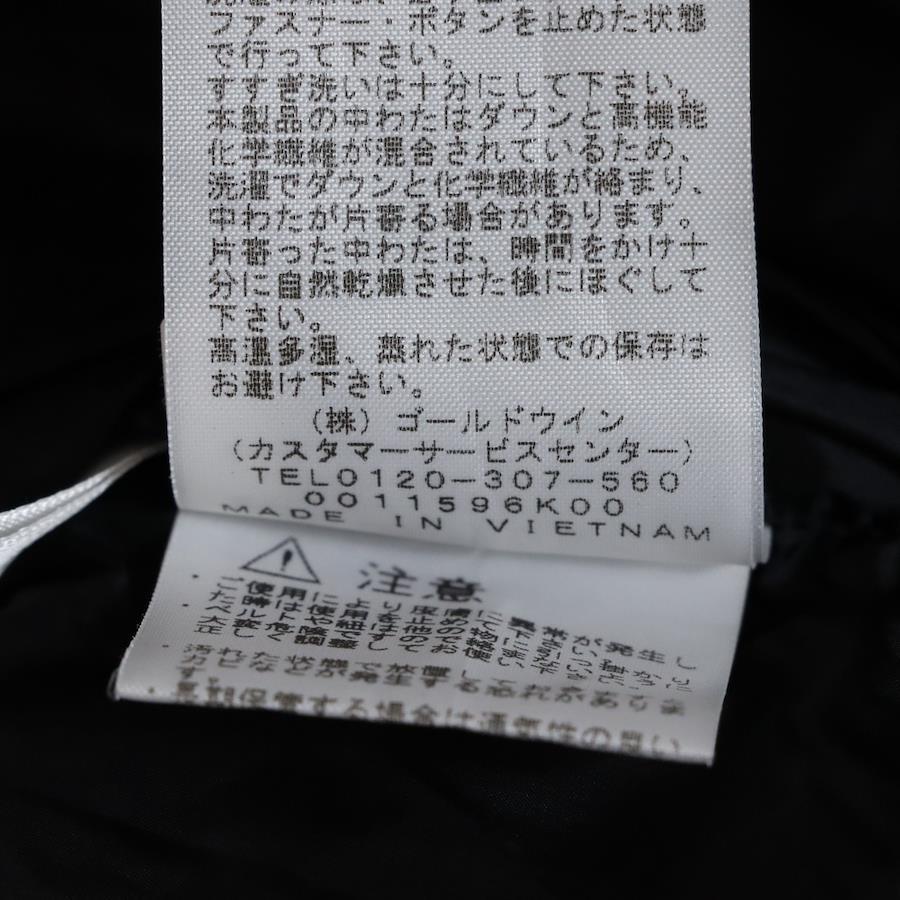 ファスナー・ボタンを止めた状態
で行って下さい。
すすぎ洗いは十分にして下さい。
本製品の中わたはダウンと高機能
化学繊維が混合されているため、
洗濯でダウンと化学繊維が絡まり、
中わたが片寄る場合があります。
片寄った中わたは、時間をかけ十
分に自然乾燥させた後にほぐして
下さい。
高温多湿、蒸れた状態での保存は
お避け下さい。
(株) ゴールドウイン
(カスタマーサービスセンター)
TEL0120-307-560
0011596K00
MADE IN VIETNAM
注意
汚れた状態で放置
長期保管する場合は通気性の良い